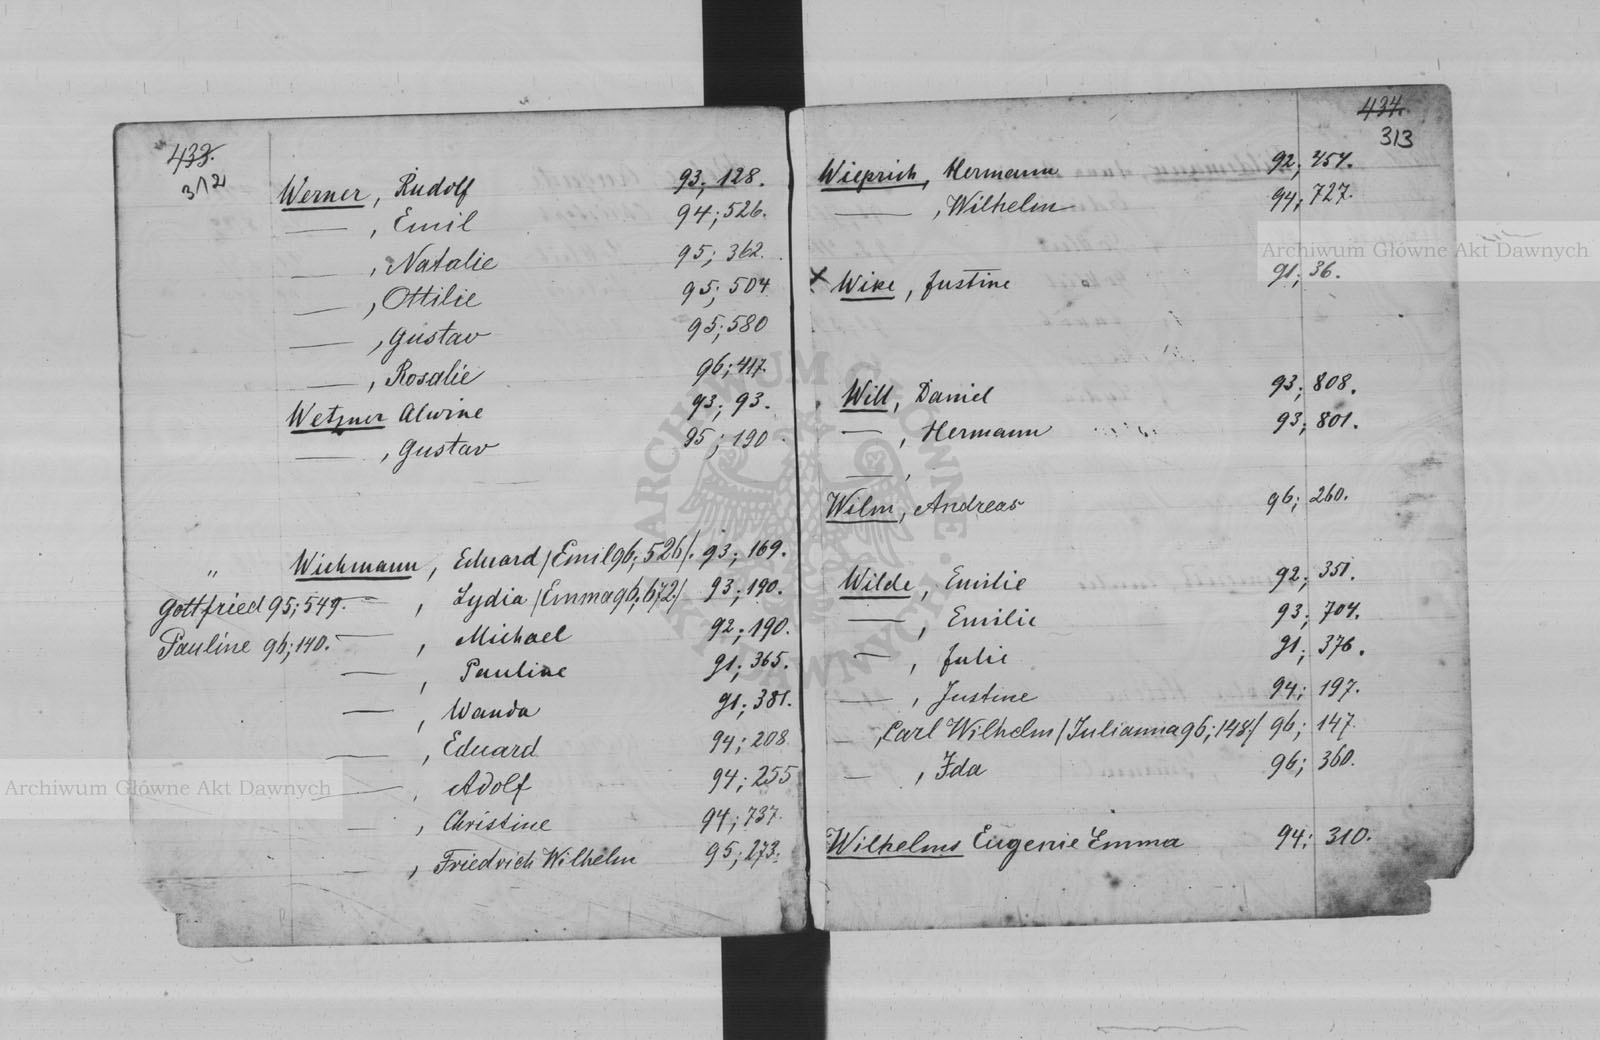 433.
312
Werner, Rudolf 93; 128.
—— , Emil 94; 526.
—— , Natalie 95; 362.
—— , Ottilie 95; 504
—— , Gustav 95; 580
—— , Rosalie 96; 417.
Wetzner Alwine 93; 93.
—— , Gustav 95; 190
" Wichmann, Eduard /Emil 96; 526/. 93; 169.
Gottfried 95; 549. — , Lydia /Emma 96; 672/ 93; 190.
Pauline 96; 140. — , Michael 92; 190.
—— , Pauline 91; 365.
—— , Wanda 91; 381.
—— , Eduard 94; 208.
—— , Adolf 94; 255
— , Christine 94; 737.
— , Friedrich Wilhelm 95; 273.
434.
313
Wieprich, Hermann 92; 457.
—— , Wilhelm 94; 727.
x Wike, Justine 91; 36.
Will, Daniel 93; 808.
— , Hermann 93; 801.
— ,
Wilm, Andreas 96; 260.
Wilde, Emilie 92; 351.
—— , Emilie 93; 704.
— , Julie 91; 376.
— , Justine 94; 197.
— , Carl Wilhelm /Julianna 96; 148/ 96; 147.
— , Ida 96; 360.
Wilhelms Eugenie Emma 94; 310.
Archiwum Główne Akt Dawnych
Archiwum Główne Akt Dawnych
ARCHIWUM GŁÓWNE AKT DAWNYCH